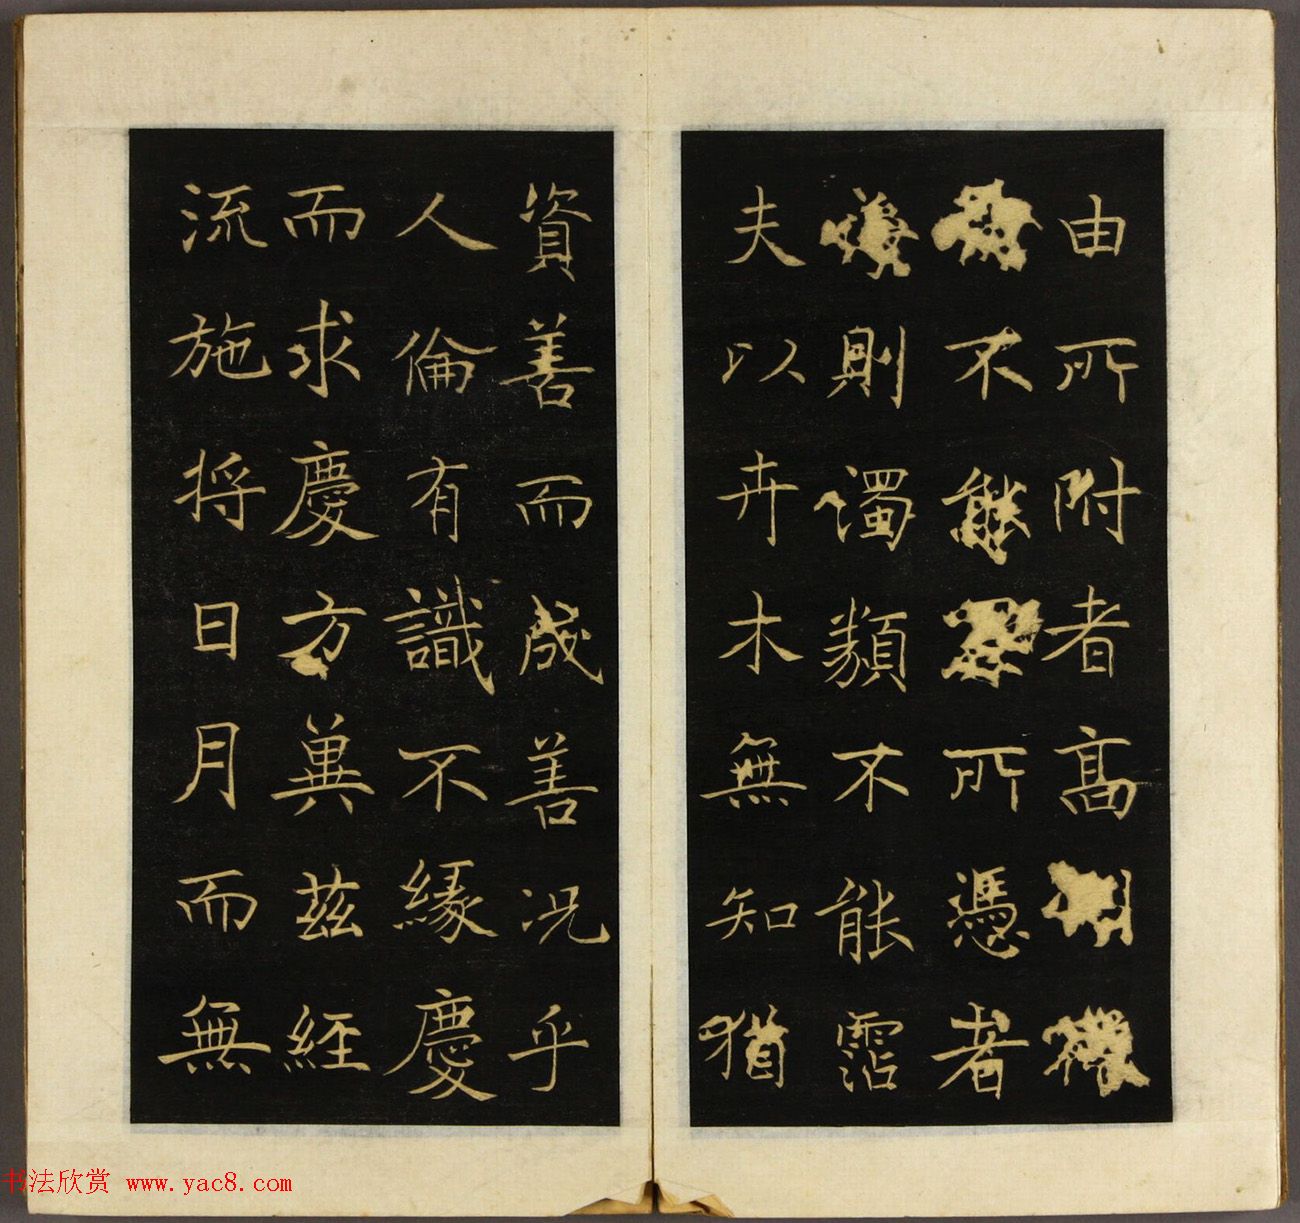 由所附者高則微
物不能累所憑者
淨則濁類不能霑
夫以卉木無知猶
資善而成善況乎
人倫有識不緣慶
而求慶方冀茲經
流施將日月而無
书法欣赏 www.yac8.com